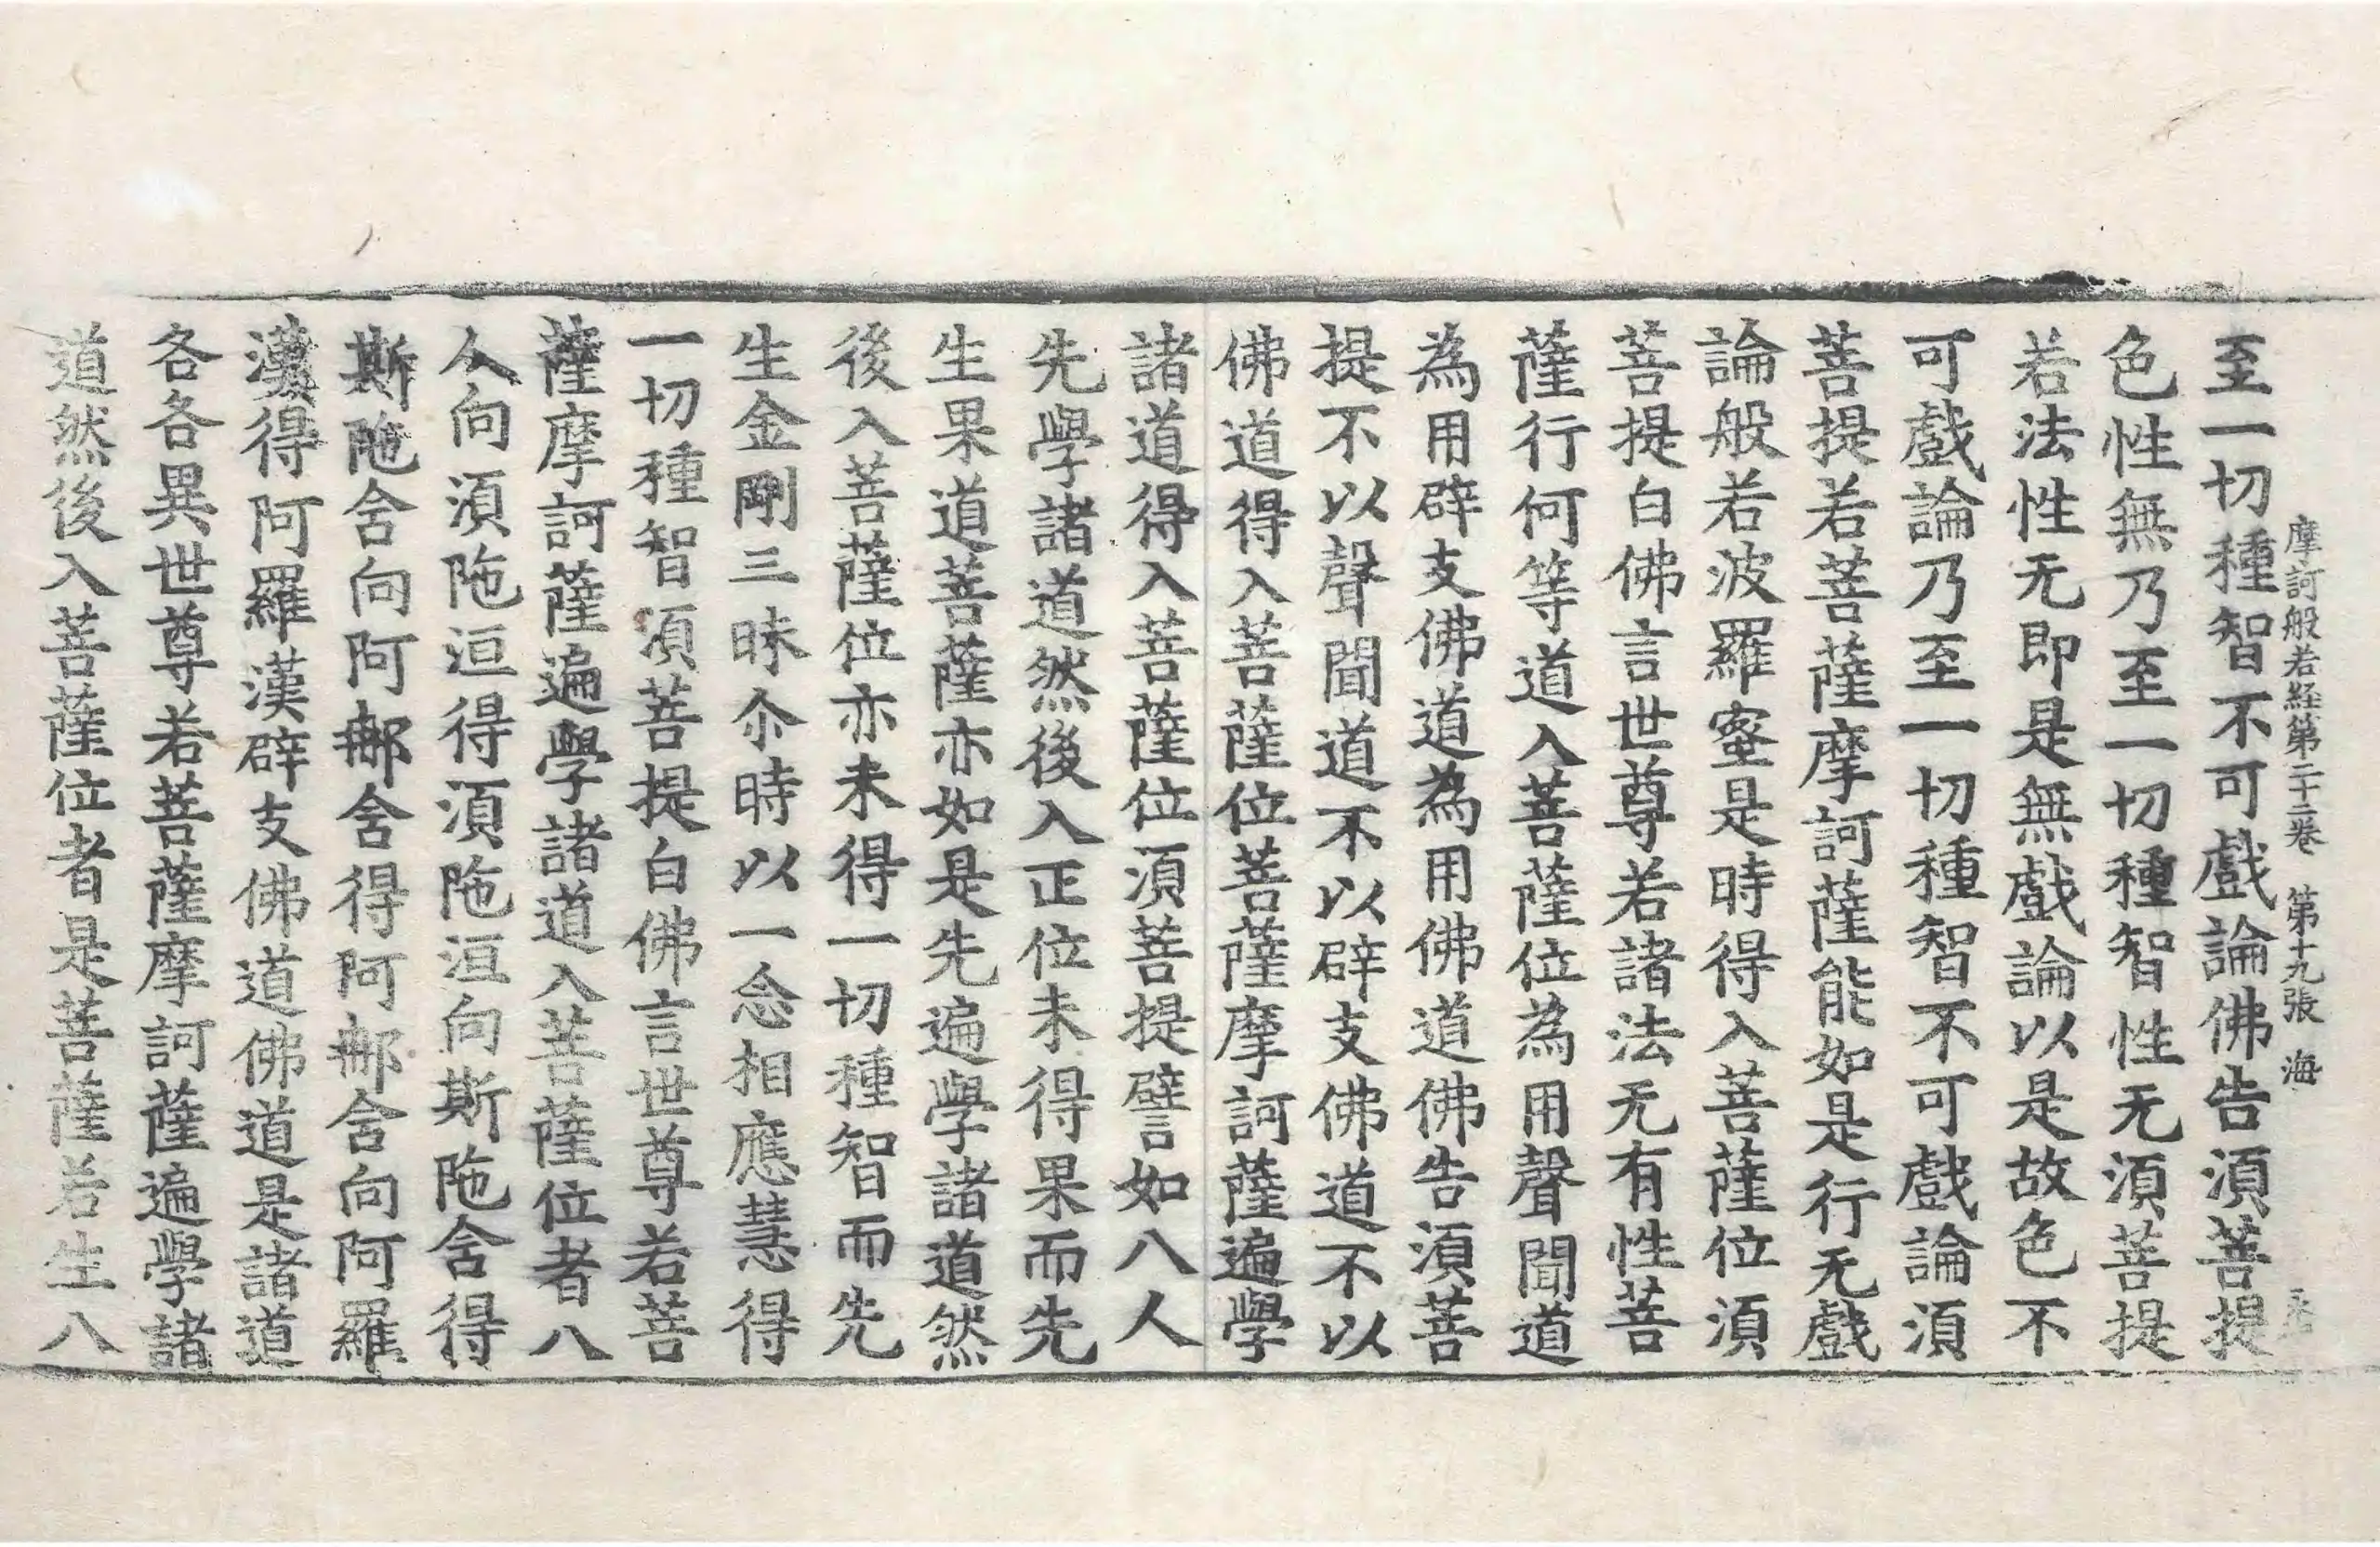 摩訶般若経第二十二卷　第十九張　海
至一切種智不可戲論佛告湏菩提
色性無乃至一切種智性无湏菩提
若法性无即是無戲論以是故色不
可戲論乃至一切種智不可戲論湏
菩提若菩薩摩訶薩能如是行无戲
論般若波羅蜜是時得入菩薩位湏
菩提白佛言世尊若諸法无有性菩
薩行何等道入菩薩位為用聲聞道
為用辟支佛道為用佛道佛告湏菩
提不以聲聞道不以辟支佛道不以
佛道得入菩薩位菩薩摩訶薩遍學
諸道得入菩薩位湏菩提譬如八人
先學諸道然後入正位未得果而先
生果道菩薩亦如是先遍學諸道然
後入菩薩位亦未得一切種智而先
生金剛三昧尒時以一念相應慧得
一切種智湏菩提白佛言世尊若菩
薩摩訶薩遍學諸道入菩薩位者八
人向湏陁洹得湏陁洹向斯陁含得
斯陁含向阿那含得阿那含向阿羅
漢得阿羅漢辟支佛道佛道是諸道
各各異世尊若菩薩摩訶薩遍學諸
道然後入菩薩位者是菩薩若生八